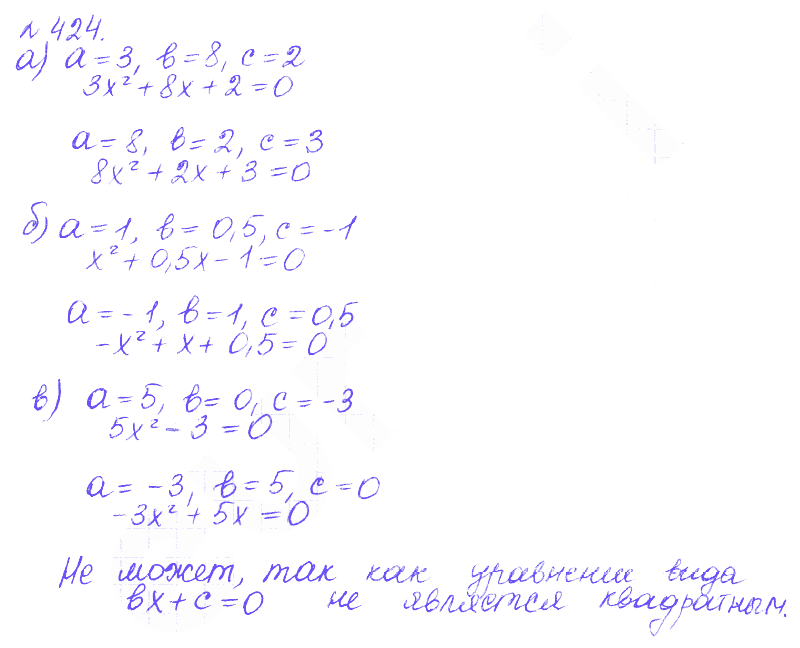 № 424.
а) a = 3, в = 8, c = 2
3x² + 8x + 2 = 0
a = 8, в = 2, c = 3
8x² + 2x + 3 = 0
б) a = 1, в = 0,5, c = -1
x² + 0,5x - 1 = 0
a = -1, в = 1, c = 0,5
-x² + x + 0,5 = 0
в) a = 5, в = 0, c = -3
5x² - 3 = 0
a = -3, в = 5, c = 0
-3x² + 5x = 0
Не может, так как уравнении вида
вx + c = 0 не является квадратным.